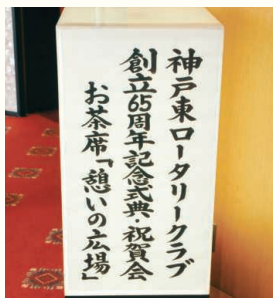 神戸東ロータリークラブ
創立65周年記念式典・祝賀会
お茶席「憩いの広場」